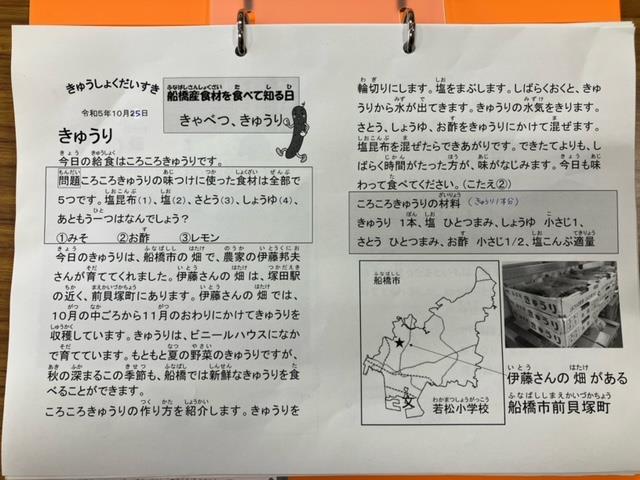 きゅうしょくだいすき
船橋産食材を食べて知る日
令和5年10月25日
きゃべつ、きゅうり
きゅうり
今日の給食はころころきゅうりです。
問題ころころきゅうりの味つけに使った食材は全部で
5つです。塩昆布(1)、塩(2)、さとう(3)、しょうゆ(4)、
あともう一つはなんでしょう?
①みそ ②お酢 ③レモン
今日のきゅうりは、船橋市の畑で、農家の伊藤邦夫
さんが育ててくれました。伊藤さんの畑は、塚田駅
の近く、前貝塚町にあります。伊藤さんの畑では、
10月の中ごろから11月のおわりにかけてきゅうりを
収穫しています。きゅうりは、ビニールハウスになか
で育てています。もともと夏の野菜のきゅうりですが、
秋の深まるこの季節も、船橋では新鮮なきゅうりを食
べることができます。
ころころきゅうりの作り方を紹介します。きゅうりを
輪切りにします。塩をまぶします。しばらくおくと、きゅ
うりから水が出てきます。きゅうりの水気をきります。
さとう、しょうゆ、お酢をきゅうりにかけて混ぜます。
塩昆布を混ぜたらできあがりです。できたてよりも、し
ばらく時間がたった方が、味がなじみます。今日も味
わって食べてください。(こたえ②)
ころころきゅうりの材料 (きゅうり1本分)
きゅうり 1本、塩 ひとつまみ、しょうゆ 小さじ1、
さとう ひとつまみ、お酢 小さじ1/2、塩こんぶ適量
船橋市
若松小学校
伊藤さんの畑がある
船橋市前貝塚町